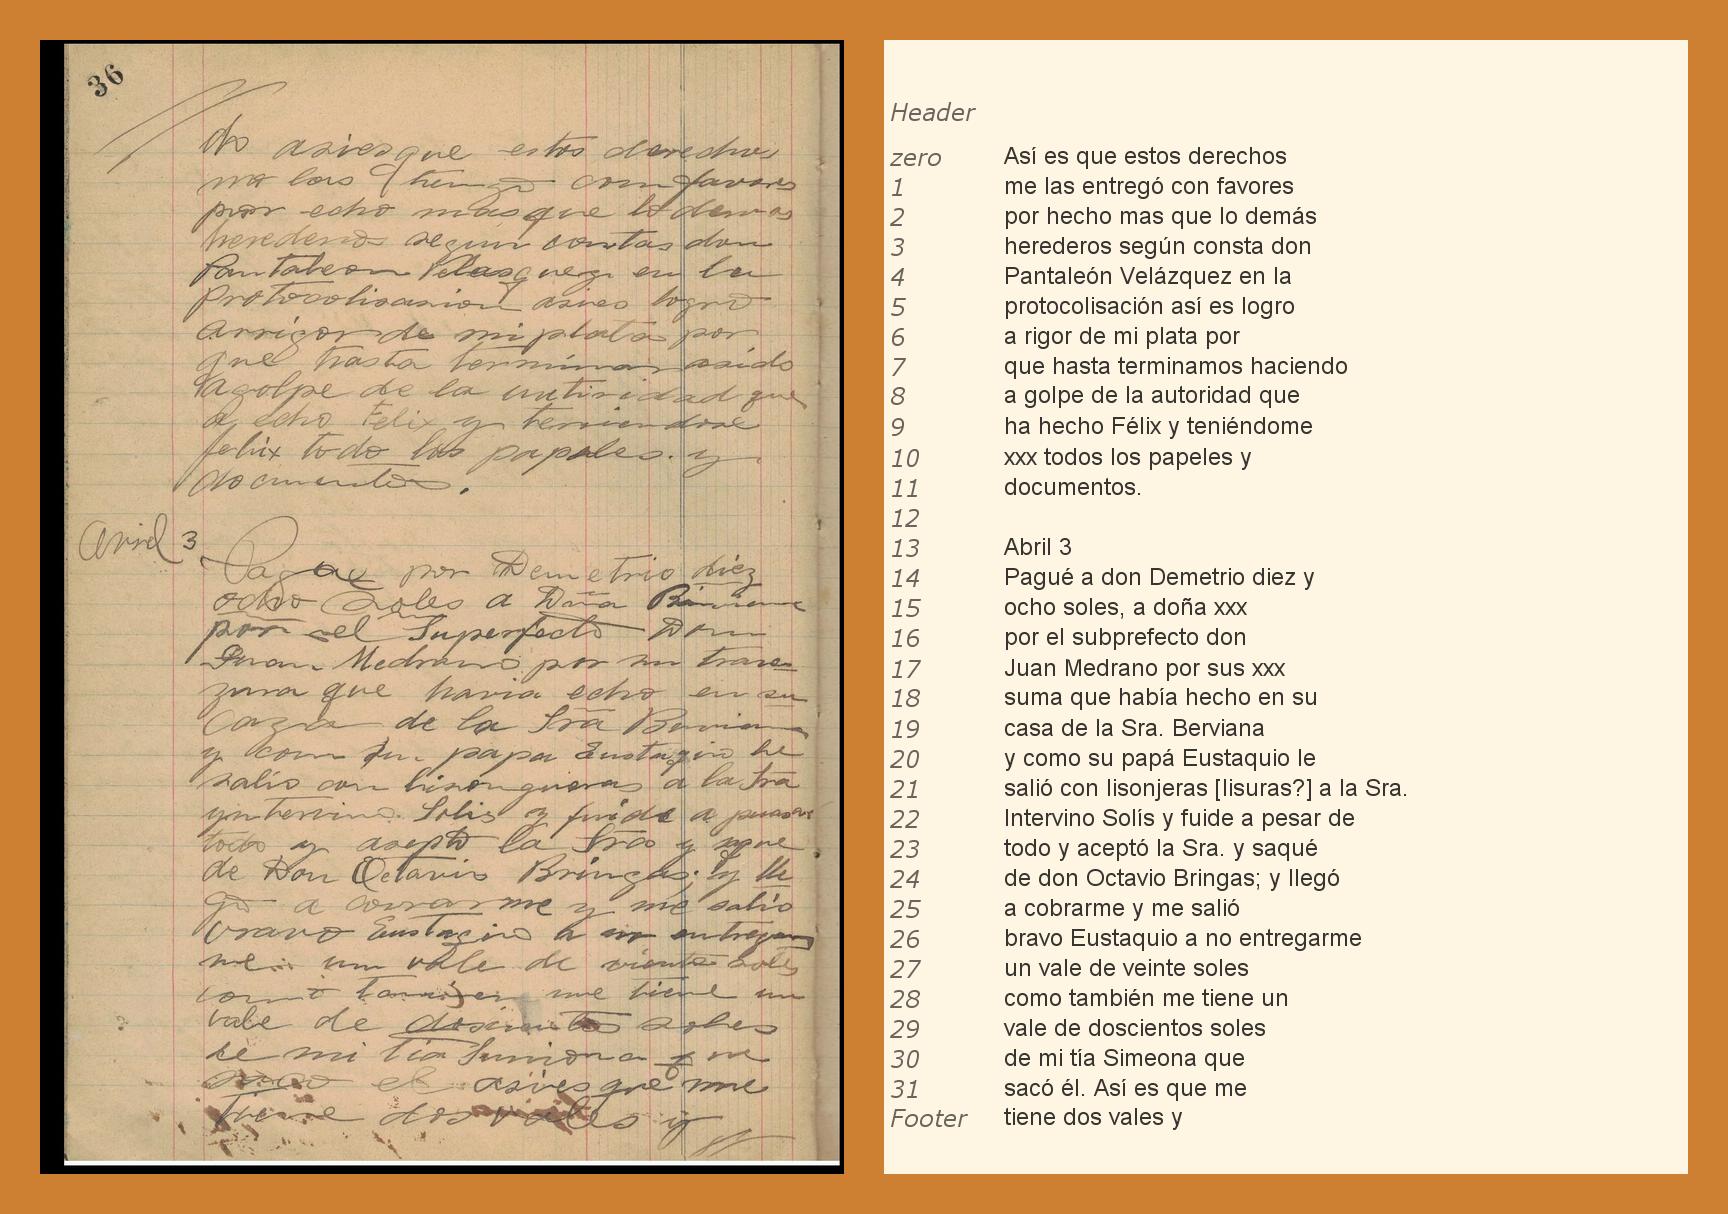 36
do asies que estos derechos
me las tiengo com favores
por echo mas que lo demas
herederos segun contas don
Pantaleon Velasquez en la
Protocolisasion asies logro
Arrigor de mi plata por
que hasta terminar asido
agolpe de la utiridad que
a echo Felix y teniendose
felix todo los papeles. y
documentos.
Avril 3
Pague por Demetrio diez
ocho Soles a Dña
por el Superfecto Don
Juan Medrano por su trave
zura que havia echo en su
Cazza de la Sra
y com su papa Eustaqio he
salio con lisongueras a la Sra
yntervino Solis y fuide a pesar
todo y asepto la Sra y
de Don Octavio Bringas; y lle
go a covrarme y me salio
bravo Eustaqio a no entregar
me un vale de viente soles
como tanvien me tiene un
vale de dosientos soles
de mi tia Simiona que
saco el asies que me
Tiene dos vales y
Header
zero Así es que estos derechos
1 me las entregó con favores
2 por hecho mas que lo demás
3 herederos según consta don
4 Pantaleón Velázquez en la
5 protocolisación así es logro
6 a rigor de mi plata por
7 que hasta terminamos haciendo
8 a golpe de la autoridad que
9 ha hecho Félix y teniéndome
10 xxx todos los papeles y
11 documentos.
12
13 Abril 3
14 Pagué a don Demetrio diez y
15 ocho soles, a doña xxx
16 por el subprefecto don
17 Juan Medrano por sus xxx
18 suma que había hecho en su
19 casa de la Sra. Berviana
20 y como su papá Eustaquio le
21 salió con lisonjeras [lisuras?] a la Sra.
22 Intervino Solís y fuide a pesar de
23 todo y aceptó la Sra. y saqué
24 de don Octavio Bringas; y llegó
25 a cobrarme y me salió
26 bravo Eustaquio a no entregarme
27 un vale de veinte soles
28 como también me tiene un
29 vale de doscientos soles
30 de mi tía Simeona que
31 sacó él. Así es que me
Footer tiene dos vales y